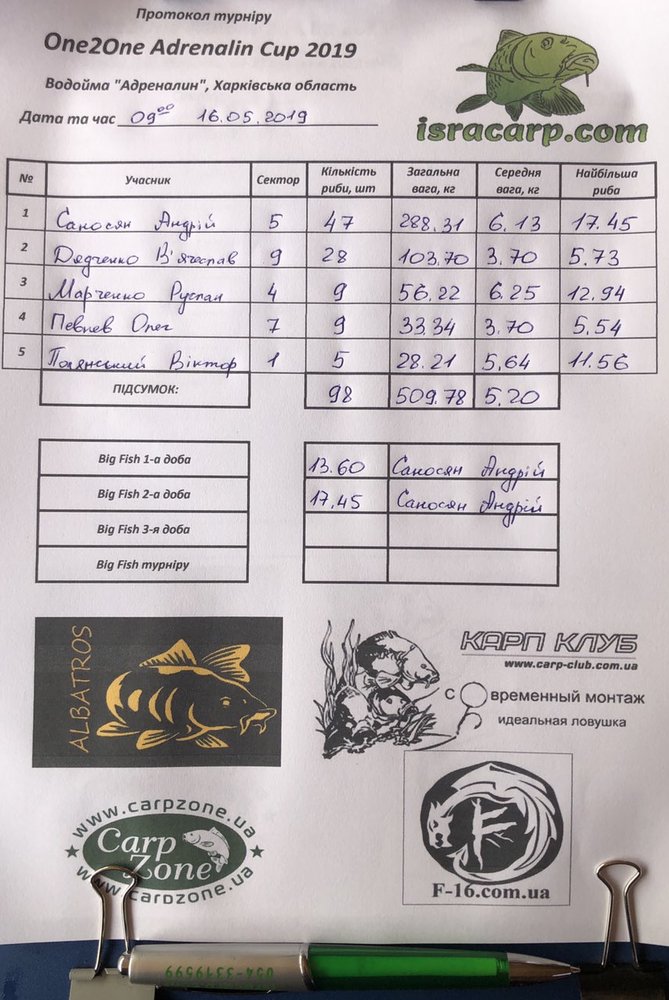 Протокол турніру
One2One Adrenalin Cup 2019
Водойма "Адреналин", Харківська область
Дата та час 09⁰⁰ 16.05.2019
isracarp.com
№ Учасник Сектор Кількість риби, шт Загальна вага, кг Середня вага, кг Найбільша риба
1 Саносян Андрій 5 47 288.31 6.13 17.45
2 Дядченко В'ячеслав 9 28 103.70 3.70 5.73
3 Марченко Руслан 4 9 56.22 6.25 12.94
4 Певнев Олег 7 9 33.34 3.70 5.54
5 Полянський Віктор 1 5 28.21 5,64 11.56
ПІДСУМОК: 98 509.78 5.20
Big Fish 1-а доба 13.60 Саносян Андрій
Big Fish 2-а доба 17.45 Саносян Андрій
Big Fish 3-я доба
Big Fish турніру
ALBATROS
КАРП КЛУБ
www.carp-club.com.ua
современный монтаж
идеальная ловушка
www.carpzone.ua
Carp
Zone
www.carpzone.ua
F-16.com.ua
054-3319599